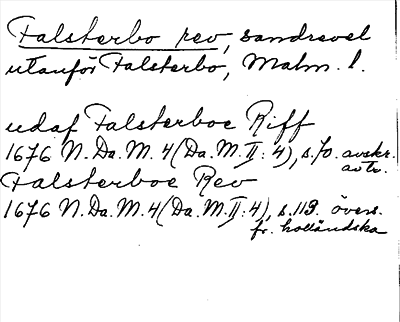 Falsterbo rev, sandrevel
utanför Falsterbo, Malm. l.
udaf Falsterboe Riff
1676 N. Da. M. 4 (Da. M. II: 4), s. 70. avskr.
av tr.
Falsterboe Rev
1676 N. Da. M. 4 (Da. M. II: 4), s. 119. övers.
fr. holländska